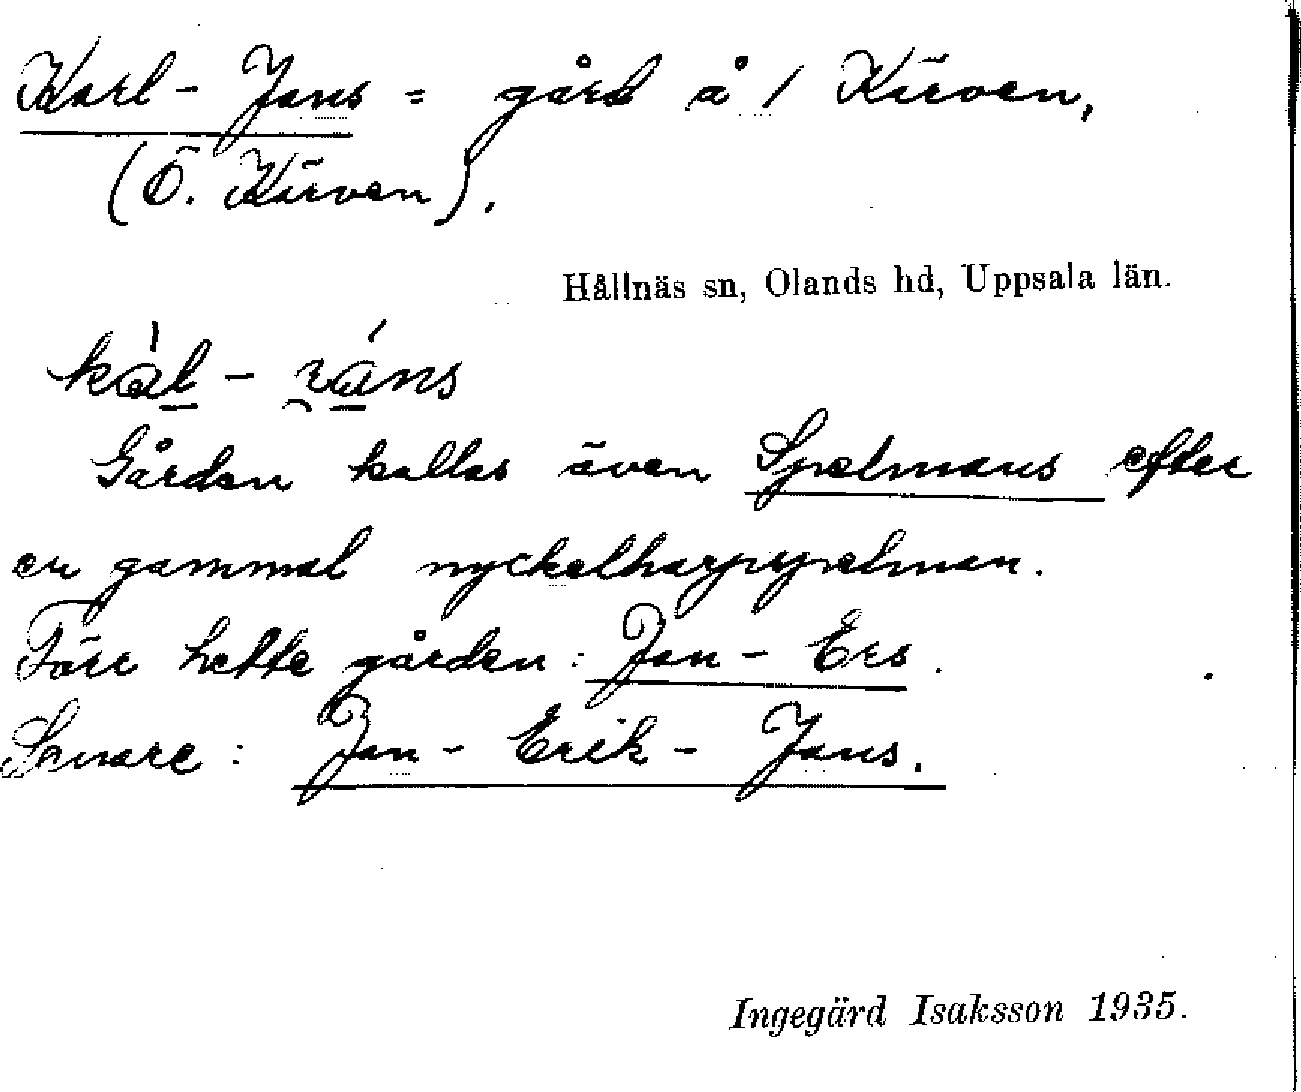 Karl-Jans = gård å 1 Kärven,
(Ö. Kärven).
Hållnäs sn, Olands hd, Uppsala län.
kàl - 
Gården kallas även Spelmans efter
en gammal nyckelharpspelman.
Förr hette gården: Jan-Ers.
Senare: Jan-Erik-Jans.
Ingegärd Isaksson 1935.